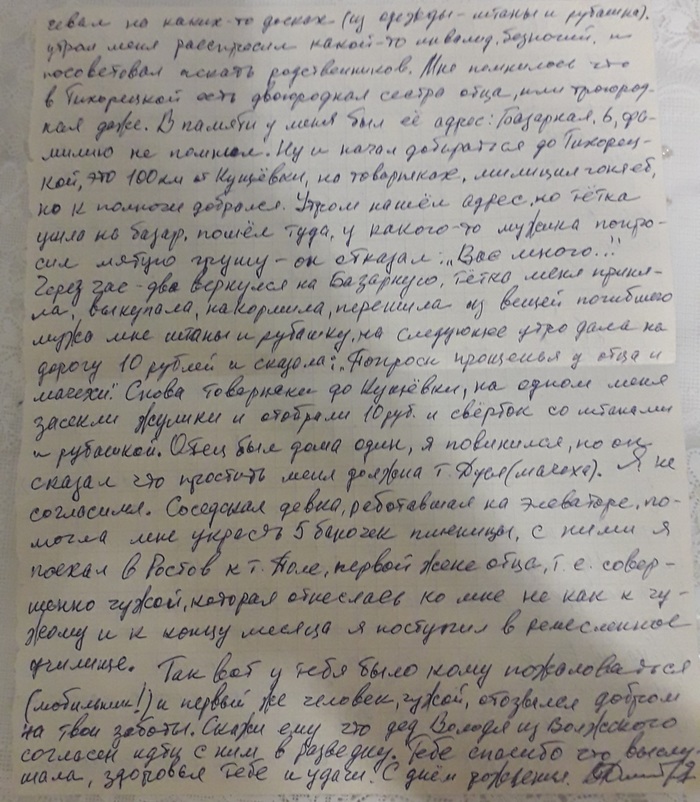 чевал на каких-то досках (из одежды - штаны и рубашка).
утром меня расспросил какой-то инвалид, безногий, и
посоветовал искать родственников. Мне помнилось что
в Тихорецкой есть двоюродная сестра отца, или троюрод-
ная даже. В памяти у меня был её адрес: Базарная, 6, фа-
милию не помнил. Ну и начал добираться до Тихорец-
кой, это 100 км от Кущёвки, на товарняках, милиция гоняет,
но к полночи добрался. Утром нашёл адрес, но тётка
ушла на базар, пошёл туда, у какого-то мужика попро-
сил мятую грушу - он отказал: „Вас много..!"
Через час-два вернулся на Базарную, тётка меня приня-
ла, выкупала, накормила, перешила из вещей погибшего
мужа мне штаны и рубашку, на следующее утро дала на
дорогу 10 рублей и сказала: „Попроси прощенья у отца и
мачехи". Снова товарняки до Кущёвки, на одном меня
засекли жулики и отобрали 10 руб. и свёрток со штанами
и рубашкой. Отец был дома один, я повинился, но он
сказал что простить меня должна т. Дуся (мачеха). Я не
согласился. Соседская девка, работавшая на элеваторе, по-
могла мне украсть 5 баночек пшеницы, с ними я
поехал в Ростов к т. Поле, первой жене отца, т.е. совер-
шенно чужой, которая отнеслась ко мне не как к чу-
жому и к концу месяца я поступил в ремесленное
училище. Так вот у тебя было кому пожаловаться
(мобильник!) и первый же человек, чужой, отозвался добром
на твои заботы. Скажи ему что дед Володя из Волжского
согласен идти с ним в разведку. Тебе спасибо что выслу-
шала, здоровья тебе и удачи! С днём рождения.